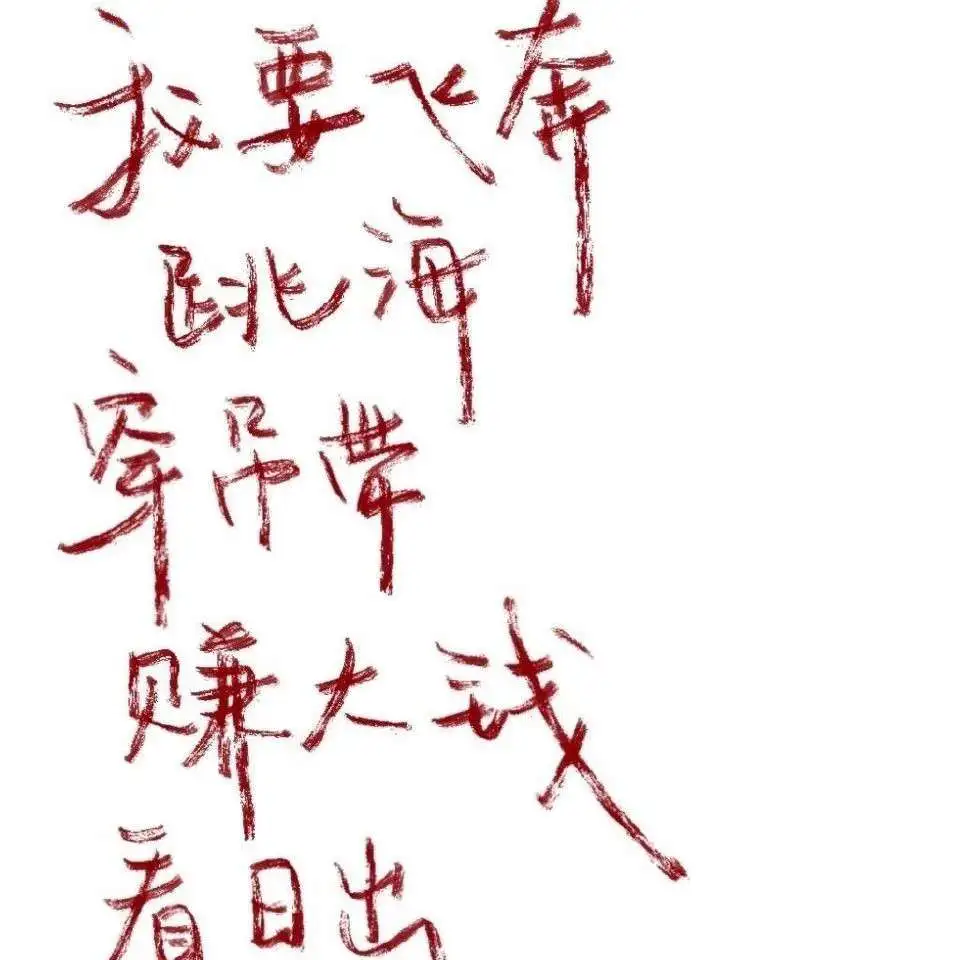 我要飞奔
跳海
穿吊带
赚大钱
看日出